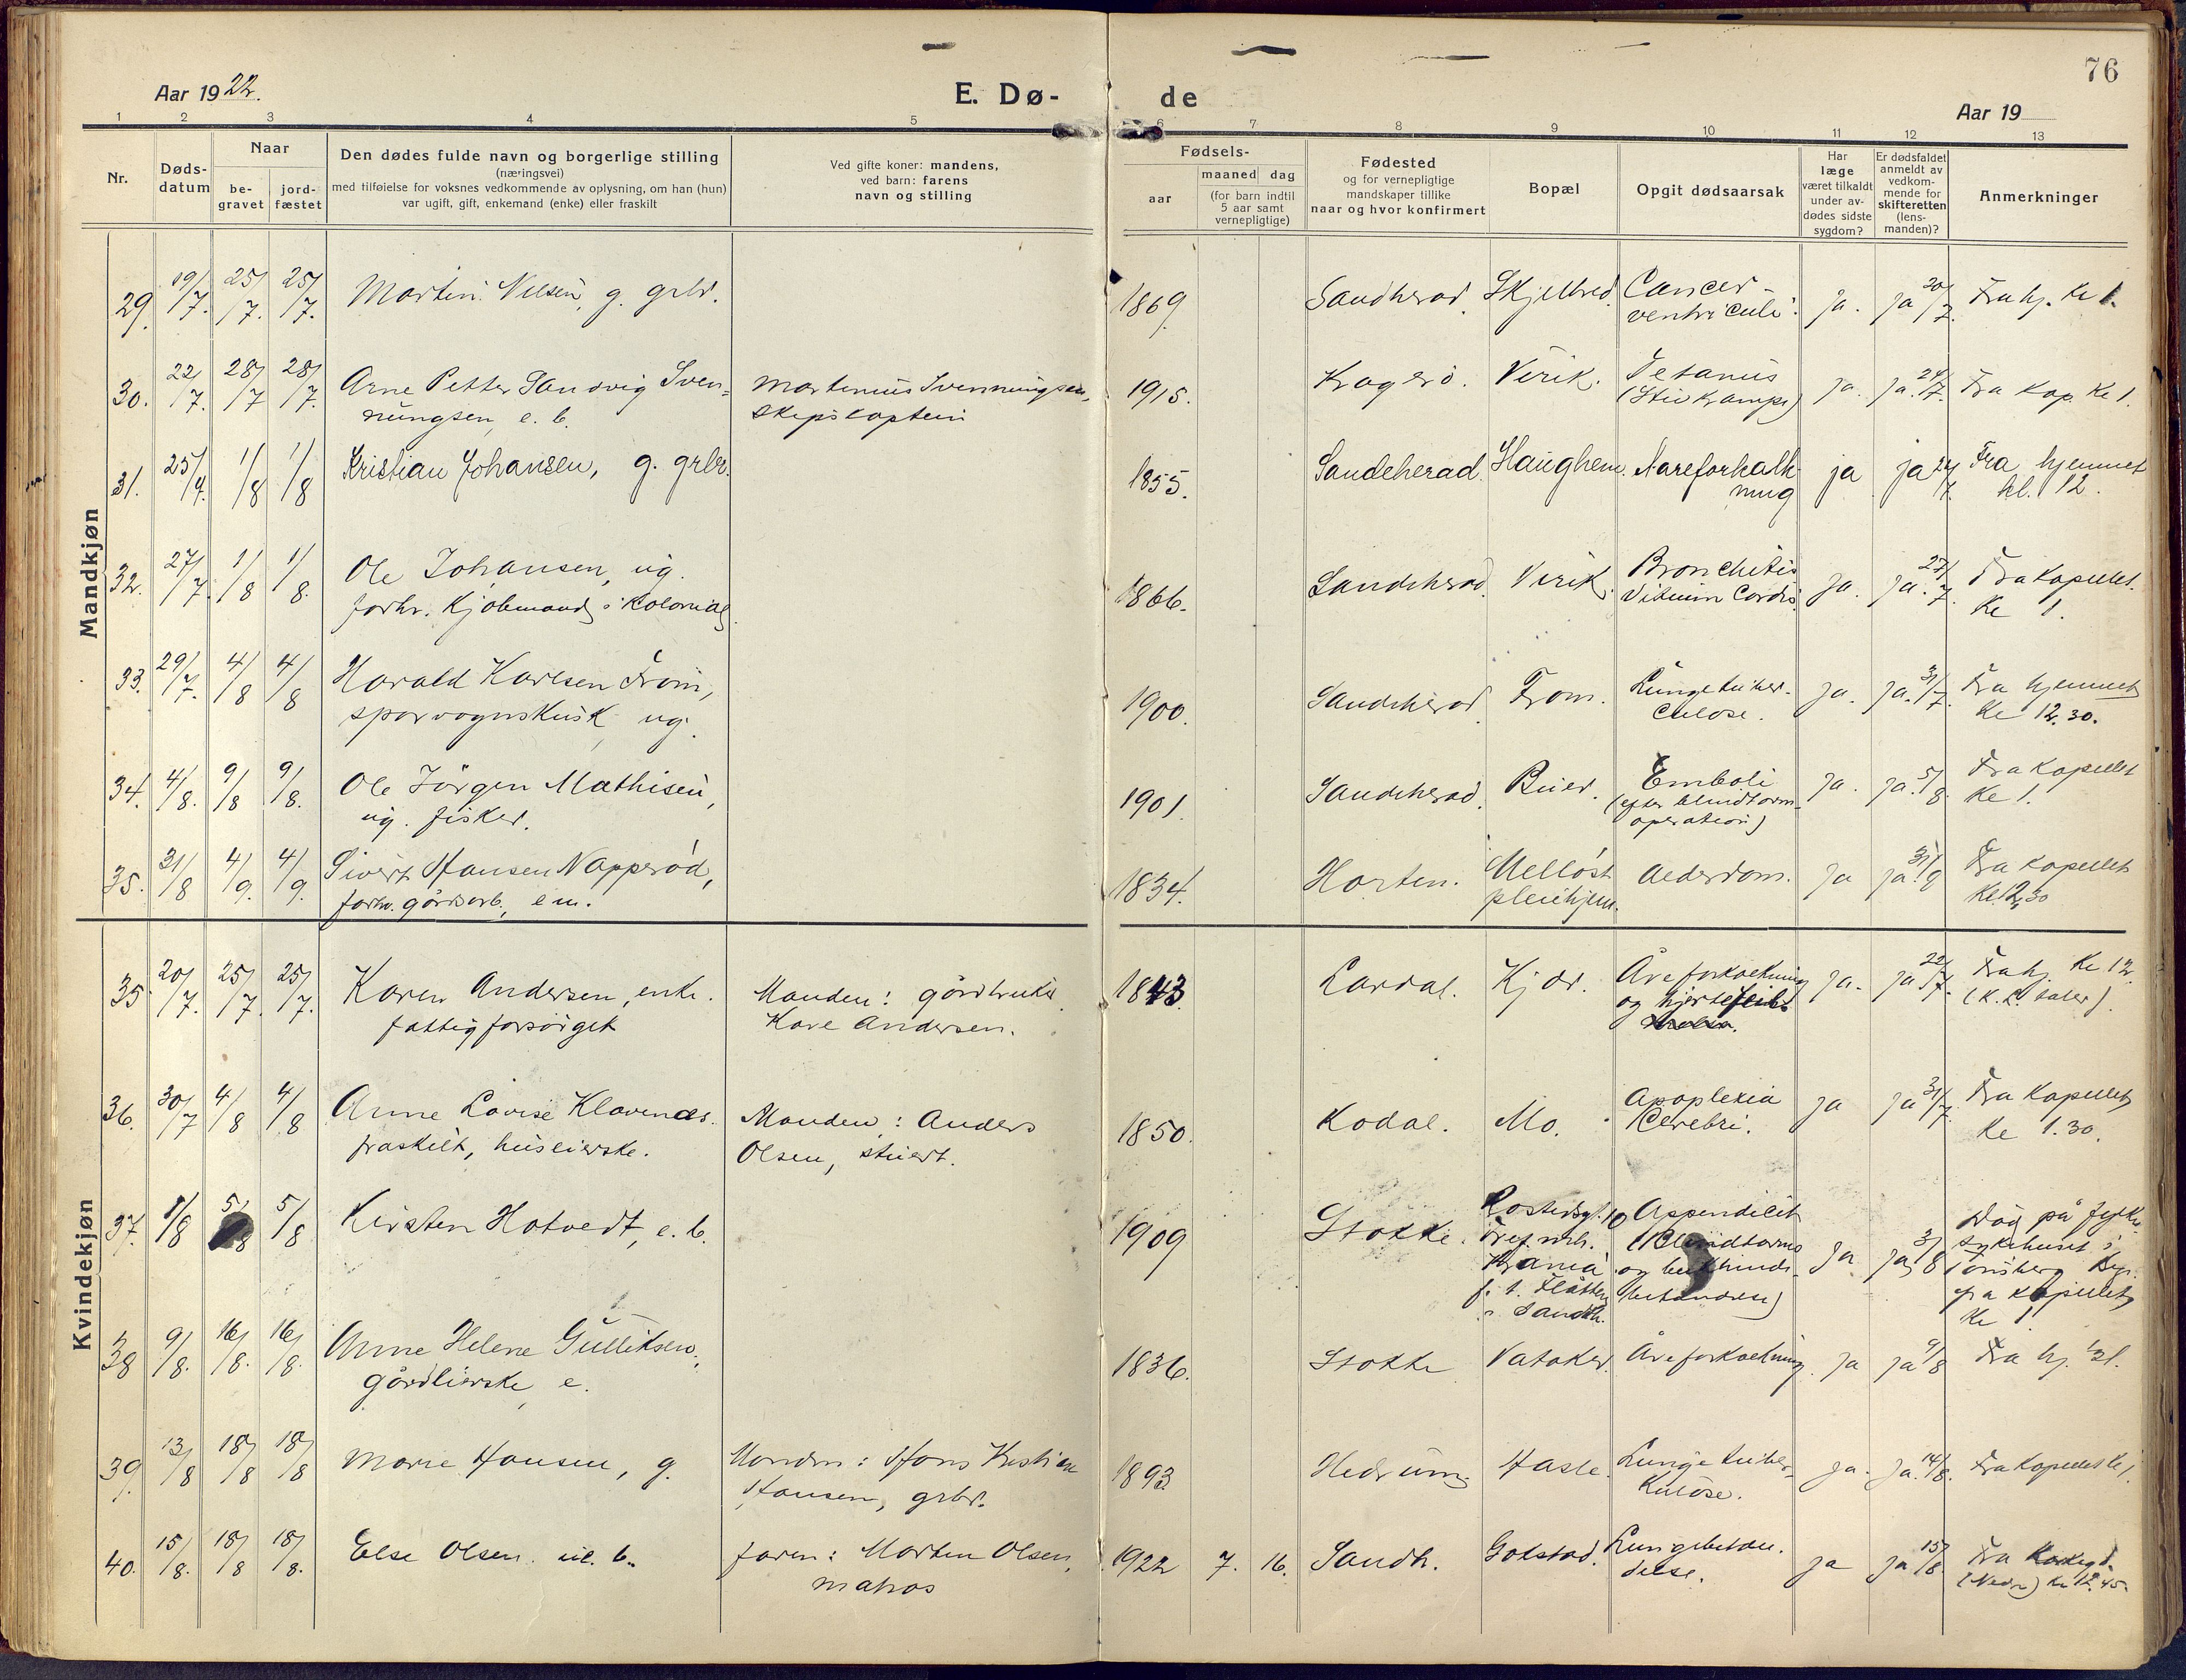 76
Aar 1922.
E. Dø-
de
Aar 19
1 2 3 4 5 6 7 8 9 10 11 12 13
Nr.
Døds-
datum
Naar
be-
gravet
jord-
fæstet
Den dødes fulde navn og borgerlige stilling
(næringsvei)
med tilføielse for voksnes vedkommende av oplysning, om han (hun)
var ugift, gift, enkemand (enke) eller fraskilt
Ved gifte koner: mandens,
ved barn: farens
navn og stilling
Fødsels-
aar
maaned dag
(for barn indtil
5 aar samt
vernepligtige)
Fødested
og for vernepligtige
mandskaper tillike
naar og hvor konfirmert
Bopæl
Opgit dødsaarsak
Har
læge
været tilkaldt
under av-
dødes sidste
sygdom?
Er dødsfaldet
anmeldt av
vedkom-
mende for
skifteretten
(lens-
manden)?
Anmerkninger
Mandkjøn
29. 19/7. 25/7. 25/7. Martin Nilsen, g. grbr. 1869. Sandherad. Skjelbred. Cancer ventriculi. ja. ja 20/7. Fra hj. kl 1.
30. 22/7. 28/7 28/7. Arne Petter Sandvig Sven=
nungsen, e. b.
Martinius Svenningsen,
skipskaptein
1915. Kragerö. Virik. Tetanus
(Stivkrampe)
ja. ja. 24/7. Fra kap. kl 1.
31. 25/7. 1/8 1/8 Kristian Johansen, g. grbr. 1855. Sandeherad. Haughem. Aareforkalk-
ning
ja ja 27/7. Fra hjemmet
kl. 12.
32. 27/7. 1/8 1/8. Ole Johansen, ug.
forhv. Kjøbmand i kolonial
1866. Sandeherad. Virik. Bronchitis
Vitium Cordis.
ja. ja. 27/7. Fra kapellet.
kl 1.
33. 29/7. 4/8 4/8 Harald Karlsen From,
sporvognskusk, ug.
1900. Sandeherad From. Lungetuber-
culose.
ja. ja. 31/7. Fra hjemmet
kl 12.30.
34. 4/8. 9/8 9/8. Ole Jörgen Mathisen,
ug. fisker.
1901. Sandeherad. Buer. Emboli
(efter blindtarm-
operation)
ja. ja. 5/8. Fra kapellet
kl 1.
35. 31/8 4/9. 4/9. Sivert Hansen Napperød,
forhv. gårdsarb., em.
1834. Horten. Melløst
pleiehjem.
Alderdom. ja ja. Fra kapellet
kl. 12,30
Kvindekjøn
35. 20/7. 25/7. 25/7. Karen Andersen, enke.
fattigforsörget
Manden: gårdbruker
Kare Andersen.
1843. Lardal. Kjær. Åreforkalkning
og hjertefeil.
ja. ja 22/7. Fra hj. kl 12
(K. L. taler).
36. 30/7 4/8 4/8 Anne Lovise Klavenæs.
fraskilt, huseierske.
Manden: Anders
Olsen, stuert.
1850. Kodal. Mo. Apoplexia
Cerebri.
ja ja 31/7. Fra kapellet
kl 1.30.
37. 1/8 5/8 5/8 Kirsten Hotvedt, e. b. 1909 Stokke.
Krania
f. t. Flåtten
i Sandh.
Appendicit
(Blindtarms
og bukhinde-
betændelse)
ja ja 3/8 Död på fylke
sykehuset i
Tönsberg. Beg.
fra kapellet
kl 1.
38 9/8. 16/8. 16/8. Anne Helene Gulliksen,
gårdeierske, e.
1836. Stokke Vataker. Åreforkalkning. ja ja 9/8 Fra hj. 1/2 1.
39. 13/8 18/8 18/8 Marie Hansen, g. Manden: Hans Kristian
Hansen, grbr.
1893. Hedrum Hasle. Lungetuber-
kulose.
ja. ja. 14/8. Fra kapellet kl 1.
40. 15/8. 18/8 18/8. Else Olsen. u. b. faren: Morten Olsen,
matros
1922 7. 16. Sandh. Gokstad. Lungebetæn-
delse.
ja ja 15/8 Fra
(Nedre) kl 12.45.